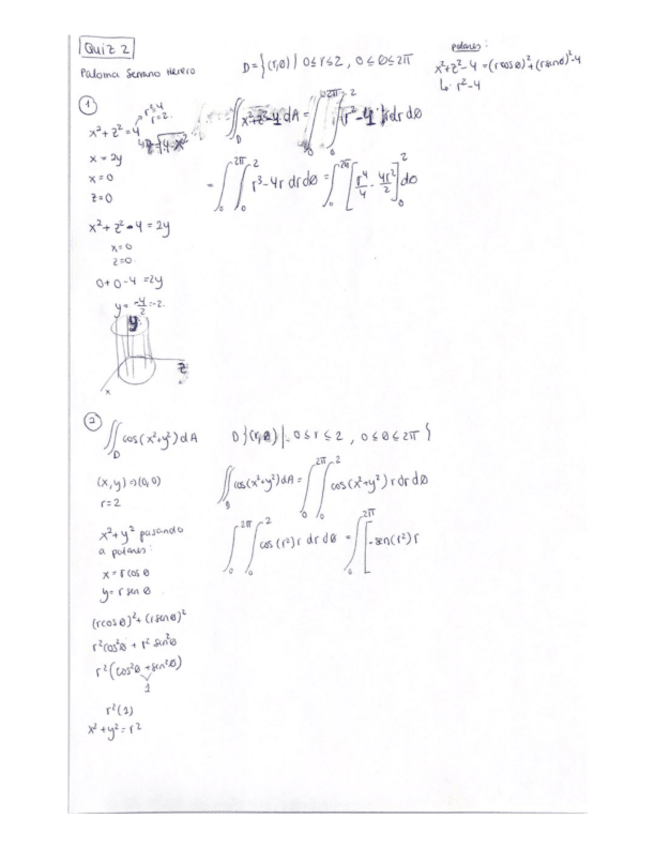 Quiz 2
Paloma Serrano Herero
D = {(r,θ) | 0≤r≤2, 0≤θ≤2π
polares:
x²+z²-4 = (rcosθ)²+(rsenθ)²-4
↳ r²-4
①
r²=4
r=2.
x²+z²=4
x=2y
x=0
z=0
∬_D x²+z²-4 dA = ∫₀^2π ∫₀² (r²-4) r dr dθ
= ∫₀^2π ∫₀² r³-4r dr dθ = ∫₀^2π [r⁴/4 - 4r²/2]₀² dθ
x²+z²-4=2y
x=0
z=0.
0+0-4=2y
y=-4/2=-2.
y
z
x
②
∬_D cos(x²+y²) dA
D}(r,θ) | 0≤r≤2, 0≤θ≤2π}
(x,y)→(0,0)
r=2
∬_D cos(x²+y²) dA = ∫₀^2π ∫₀² cos(x²+y²) r dr dθ
x²+y² pasando
a polares:
∫₀^2π ∫₀² cos(r²) r dr dθ = ∫₀^2π [-sen(r²) r
x=rcosθ
y=r senθ
(rcosθ)²+(rsenθ)²
r²cos²θ + r² sen²θ
r²(cos²θ+sen²θ)
1
r²(1)
x²+y²=r²